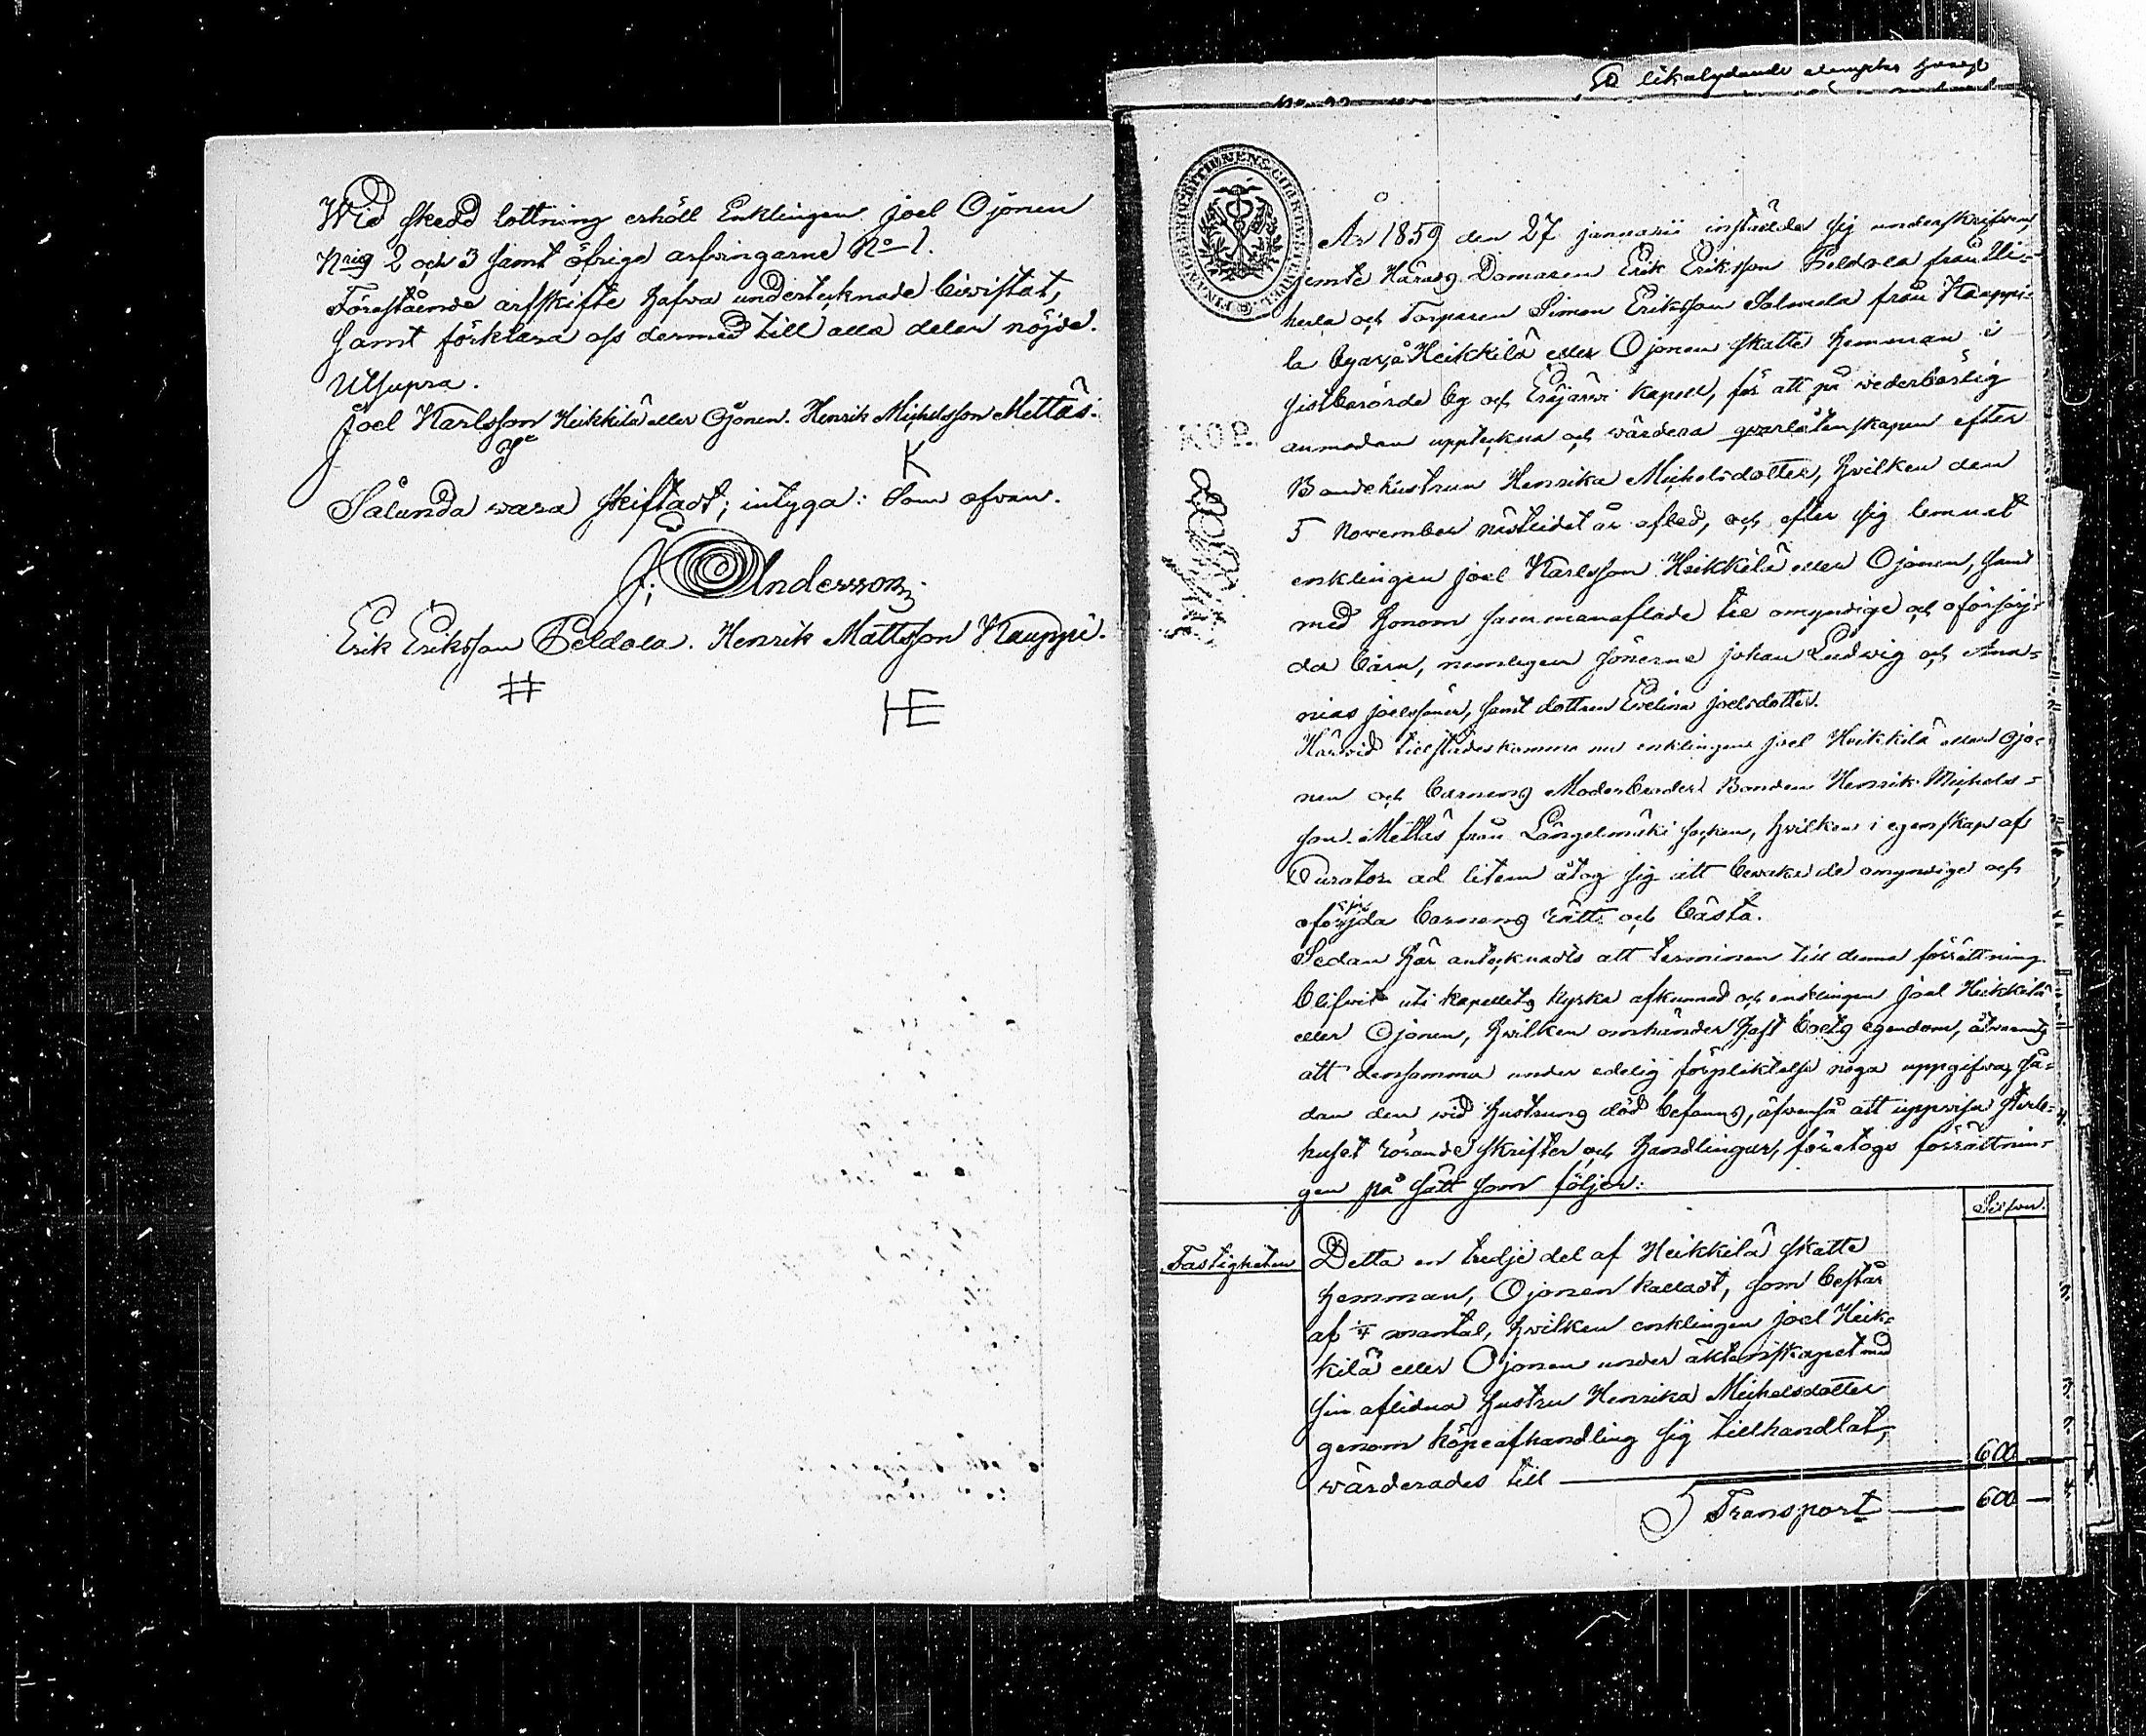 Wid skedd lottning erhöll Enklingen Joel Ojonen
N:ris 2 och 3 samt öfrige arfvingarne N:o 1.
Förestående arfskifte hafva undertecknade biwistat,
samt förklara oss dermed till alla delar nöjde.
Utsupra.
Joel Karlsson Heikkilä eller Ojonen. Henrik Michelsson Mettäs.
K
Sålunda vara skiftadt; intyga: Som ofvan.
J: Andersson
Erik Eriksson Peldola. Henrik Mattsson Kauppi.
HE
likalydande
FINANCEEXPEDITIONENS
År 1859 den 27 Januarii inställde sig underskrifven,
jemte Härads Domaren Erik Eriksson Peldola från
och Torparen Simon Eriksson Salmela från Kauppi=
la byar, å Heikkilä eller Ojonen skatte hemman i
sistberörde by och Eräjärvi kapell, för att på vederbörlig
anmodan uppteckna och värdera qvarlåtenskapen efter
KOP.
Bondehustrun Henrika Michelsdotter, hvilken den
5 November nästledet år afled, och efter sig lemnat
enklingen Joel Karlsson Heikkilä eller Ojonen, samt
med honom sammanaflade tre omyndige och oförsörj=
da barn, nemligen sönerne Johan Ludvig och Ana=
nias Joelssöner, samt dottren Evelina Joelsdotter.
Härvid tillstädeskomme nu enklingen Joel Heikkilä eller Ojo=
nen och barnens Moderbroder Bonden Henrik Michels=
son Mettäs från Längelmäki socken, hvilken i egenskap af
Curator ad litem åtog sig att bevaka de omyndige och
oförsörjda barnens rätt och bästa.
Sedan här antecknadts att terminen till denna förrättning
blifvit uti kapellets kyrka afkunnad och enklingen Joel Heikkilä
eller Ojonen, hvilken omhänder haft boets egendom, åtvarnats
att densamma under edelig förpliktelse noga uppgifva, så=
dan den vid hustruns död befanns, äfvenså att uppvisa sterb=
huset rörande skrifter och handlingar, företogs förrättnin=
gen på sätt som följer:
Silfver.
Fastigheten
Detta en tredje del af Heikkilä skatte
hemman, Ojonen kalladt, som består
af 1/4 mantal, hvilken enklingen Joel Heik=
kilä eller Ojonen under äktenskapet med
sin aflidna hustru Henrika Michelsdotter
genom köpeafhandling sig tillhandlat,
värderades till — 600 —
Transport — 600 —